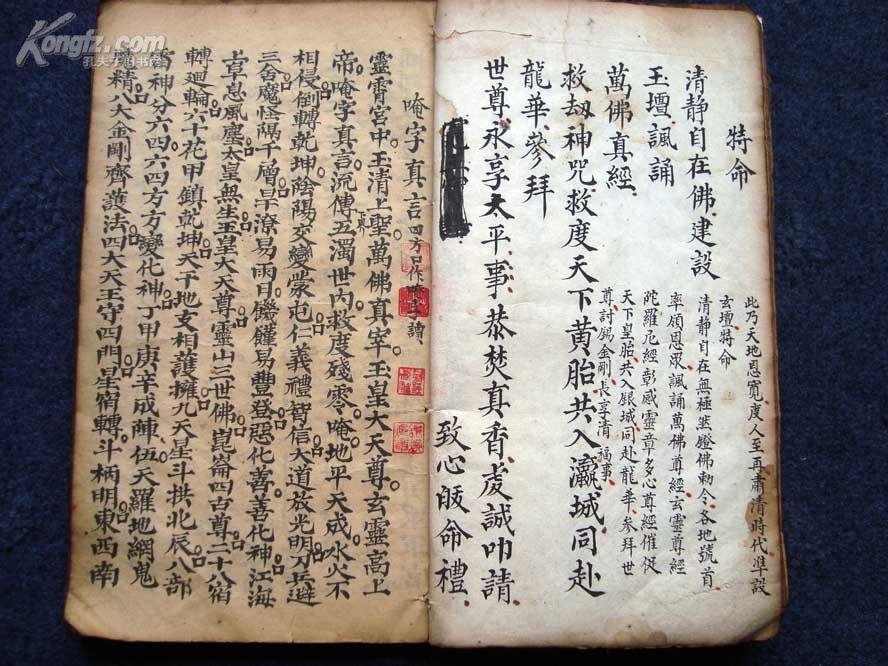 此乃天地恩寬度人至再肅清時代準設
玄壇特命
清静自在無極燃燈佛勅令各地號首
率領恩眾諷誦萬佛尊經玄靈尊經
陀羅尼經彰感靈章多心尊經催促
天下皇胎共入銀城同赴龍華參拜世
尊討錫金剛長享清福事
特命
清静自在佛建設
玉壇諷誦
萬佛真經
救劫神咒救度天下黄胎共入瀛城同赴
龍華參拜
世尊永享太平事恭焚真香虔誠叩請
致心皈命禮
唵字真言四方口作唵字讀
靈霄宮中玉清上聖萬佛真宰玉皇大天尊玄靈高上
帝唵字真言流傳五濁世内救度殘零唵地平天成水火不
相侵倒轉乾坤陰陽交變蒙屯仁義禮智信大道放光明刀兵避
三舍魔怪隔千層旱潦易雨日饑饉易豐登惡化善善化神江海
上草息風塵太皇無生玉皇大天尊靈山三世佛崑崙四古尊二十八宿
轉迴輪六十花甲鎮乾坤天干地支相護擁九天星斗拱北辰八部
雷神分六四六四方方變化神丁甲庚辛成陣伍天羅地網鬼
精八大金剛齊護法四大天王守四門星宿轉斗柄明東西南
Kongfz.com
孔夫子旧书网